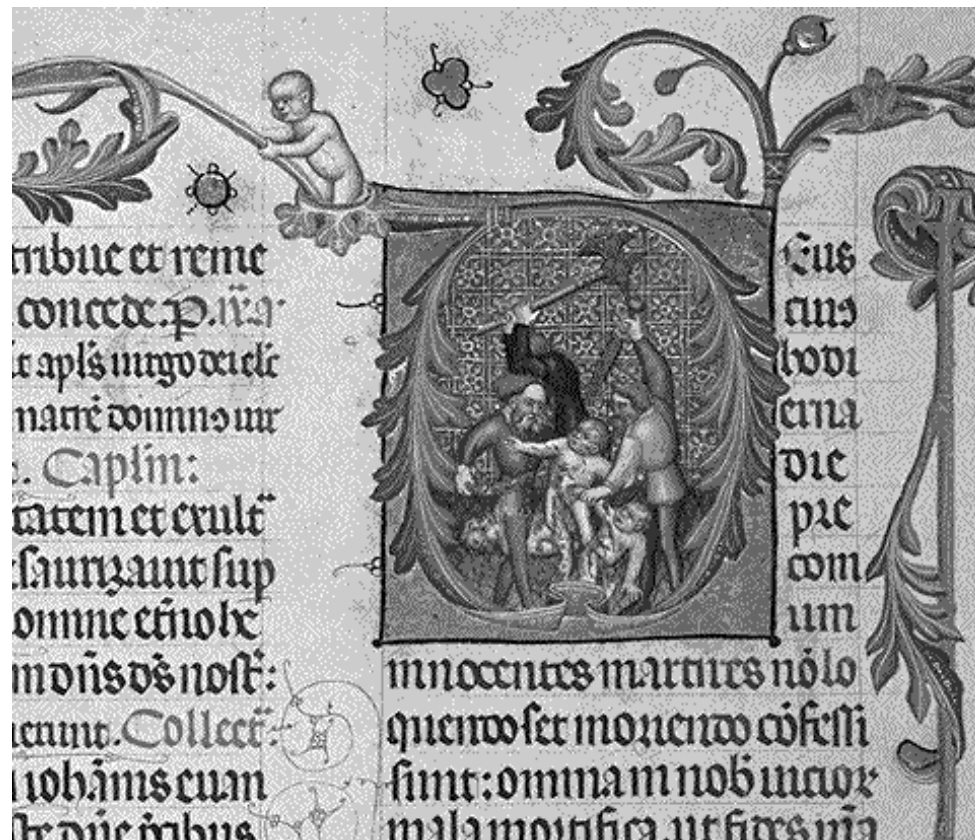 tribue et reme
concede. p.
apl̄s uirgo dei elc̄
matrē domin9 uir
Caplm:
tatem et exult̄
sauriȝauit sup
omine et̄no he
m dn̄s ds̄ nost̄:
ierunt. Collect̄:
ioh̄anis euan
ste dn̄e p̄cibus
Eus
cuius
hodi
erna
die
pre
com
um
innocentes martires nō lo
quendo set moriendo cōfessi
sunt: omnia in nob̄ uicior
mala mortifica. ut fides n̄ra